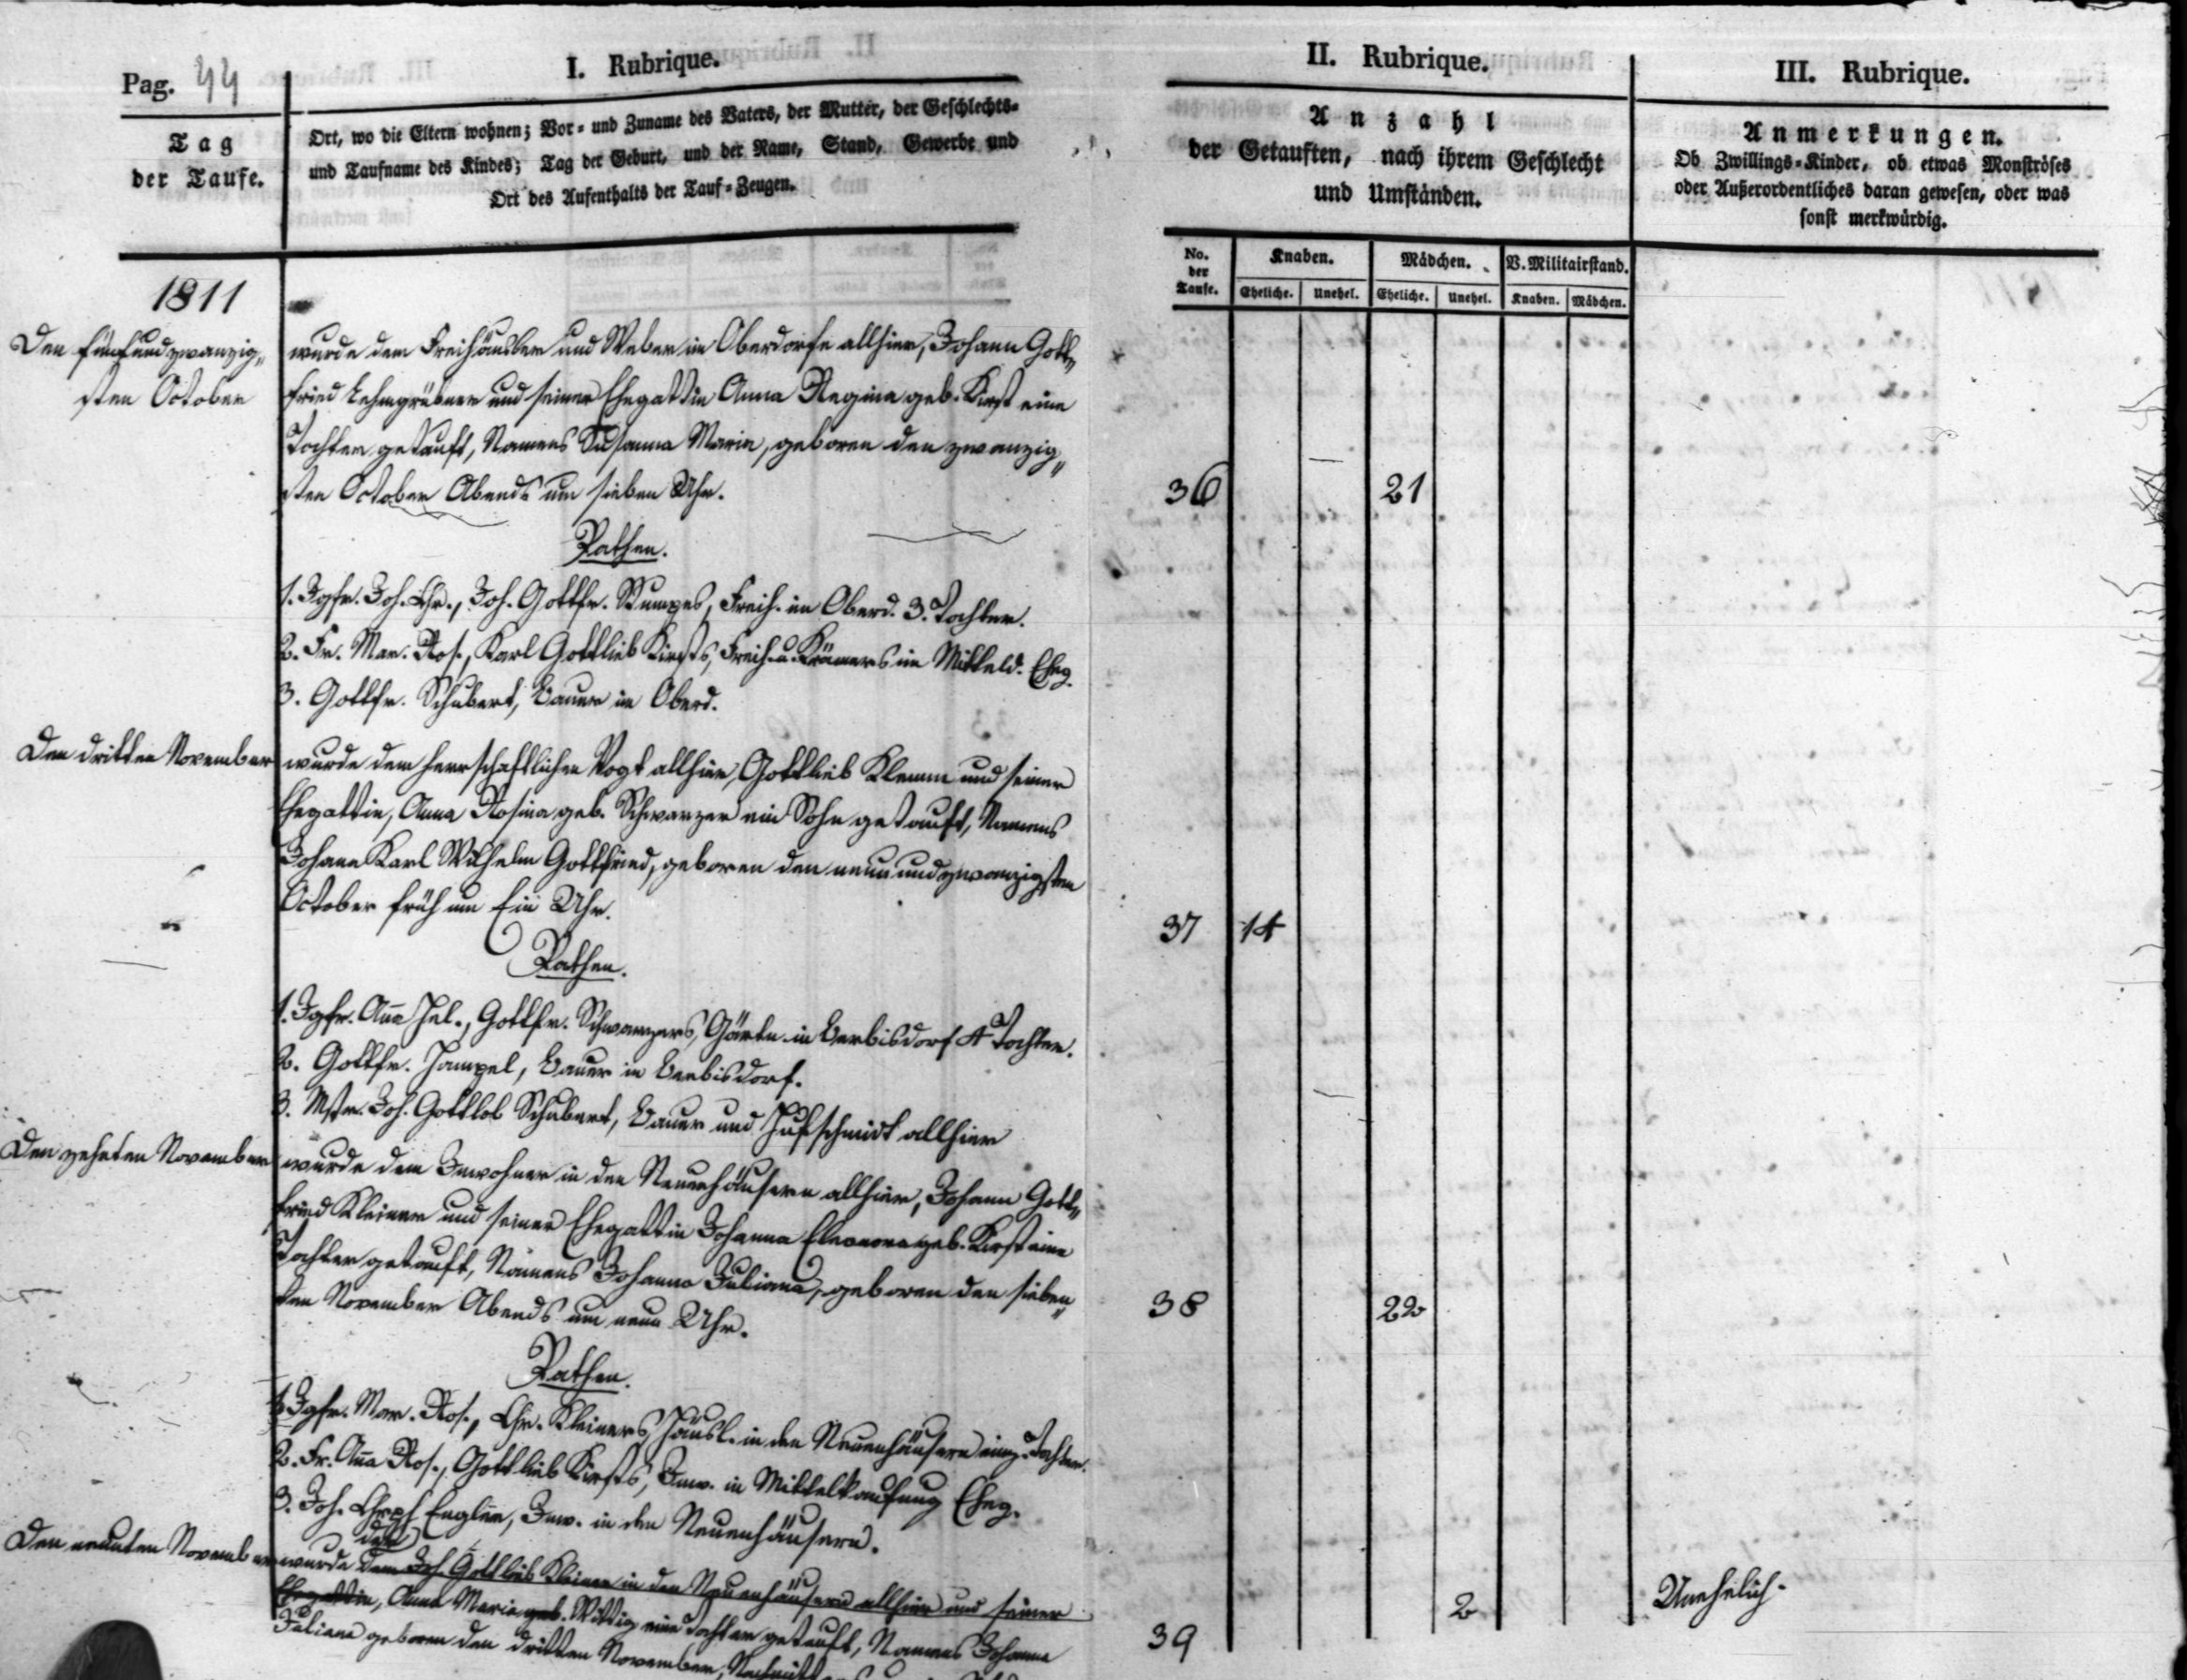 Pag. 44
I. Rubrique.
II. Rubrique.
III. Rubrique.
Tag
der Taufe.
Ort, wo die Eltern wohnen; Vor- und Zuname des Vaters, der Mutter, der Geschlechts-
und Taufname des Kindes; Tag der Geburt, und der Name, Stand, Gewerbe und
Ort des Aufenthalts der Tauf-Zeugen.
Anzahl
der Getauften, nach ihrem Geschlecht
und Umständen.
Anmerkungen.
Ob Zwillings-Kinder, ob etwas Monströses
oder Außerordentliches daran gewesen, oder was
sonst merkwürdig.
No. der Taufe.
Knaben.
Mädchen.
V. Militairstand.
Eheliche. Unehel. Eheliche. Unehel. Knaben. Mädchen.
1811
Den fünfundzwanzig„
sten October
wurde dem Freihäusler und Weber im Oberdorfe allhier, Johann Gott„
fried Lehmgrübner und seiner Ehegattin Anna Regina geb. Kirst eine
Tochter getauft, Namens Susanna Maria, geboren den zwanzig„
sten October Abends um sieben Uhr.
36 21
Pathen.
1. Jgfr. Joh. Chr., Joh. Gottfr. Stumpes, Freih. im Oberd. 3. Tochter.
2. Fr. Mar. Ros., Karl Gottlieb Kirsts, Freih. u. Krämers im Mitteld. Eheg.
3. Gottfr. Schubert, Bauer im Oberd.
Den dritten November
wurde dem herrschaftlichen Vogt allhier, Gottlieb Klemm und seiner
Ehegattin, Anna Rosina geb. Schwarzer ein Sohn getauft, Namens
Johann Karl Wilhelm Gottfried, geboren den neunundzwanzigsten
October früh um Ein Uhr.
37 14
Pathen.
1. Jgfr. Anna Hel., Gottfr. Schwarzers, Gärtn. in Berbisdorf 4 Tochter.
2. Gottfr. Hampel, Bauer in Berbisdorf.
3. Mstr. Joh. Gottlob Schubert, Bauer und Hufschmidt allhier
Den zehnten November
wurde dem Inwohner in den Neuenhäusern allhier, Johann Gott„
fried Kleiner und seiner Ehegattin Johanna Eleonora geb. Kirst eine
Tochter getauft, Namens Johanna Juliana, geboren den sieben„
ten November Abends um neun Uhr.
38 22
Pathen.
1. Jgfr. Mar. Ros., Chr. Kleiners, Häusl. in den Neuenhäusern einz. Tochter.
2. Fr. Anna Ros., Gottlieb Kirsts, Inw. in Mittelkauffung Eheg.
3. Joh. Chrph Englin, Inw. in den Neuenhäusern.
Den neunten November
der
wurde dem Joh. Gottlieb Kleiner in den Neuenhäusern allhier und seiner
Ehegattin, Anna Maria geb. Wittig eine Tochter getauft, Namens Johanna
Juliana geboren den dritten November,
39 2 Unehelich.